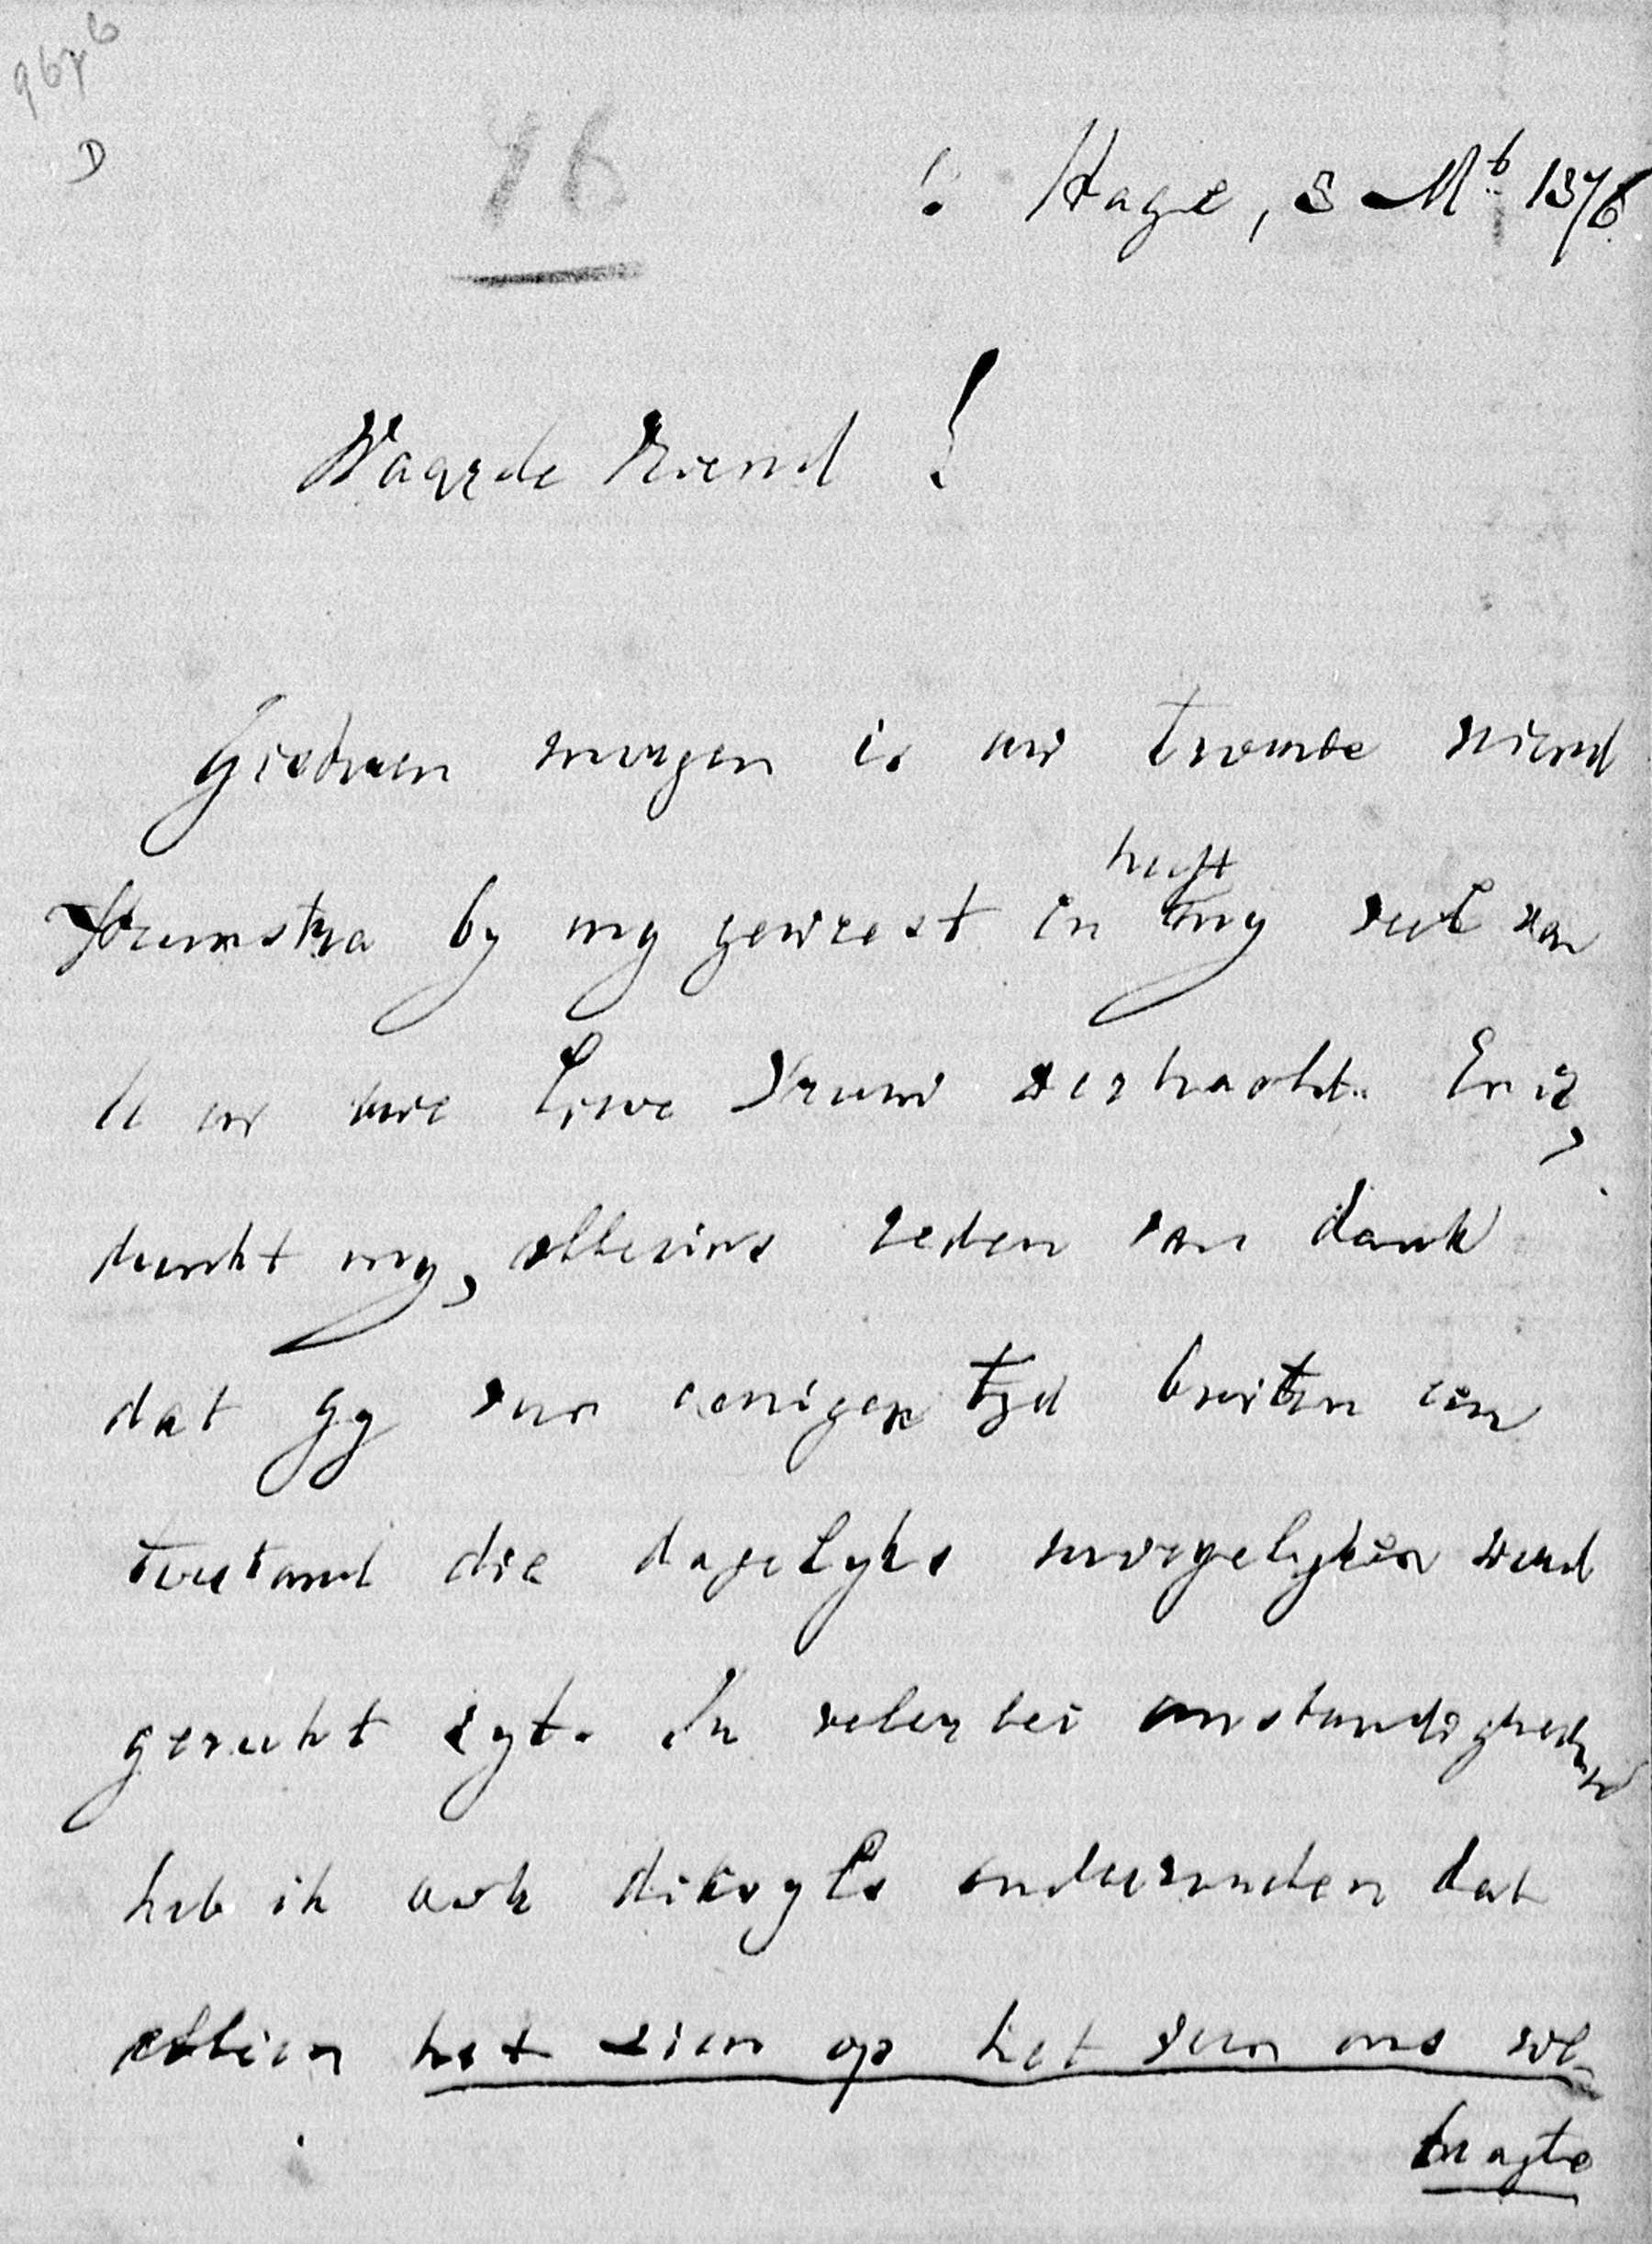 967 6
D
76
's Hage, 3 Mt 1876.
Waarde Vriend!
Gisteren morgen is uw trouwe vriend
by my geweest en heeft my veel van
U en uwe lieve Vrouw verhaald. Er is,
dunkt my, alleszins reden van dank
dat gy voor eenigen tyd buiten een
toestand die dagelyks onmogelyker werd
gerukt zyt. In velerlei omstandigheden
heb ik ook dikwyls ondervonden dat
alleen het zien op het voor ons vol-
bragte